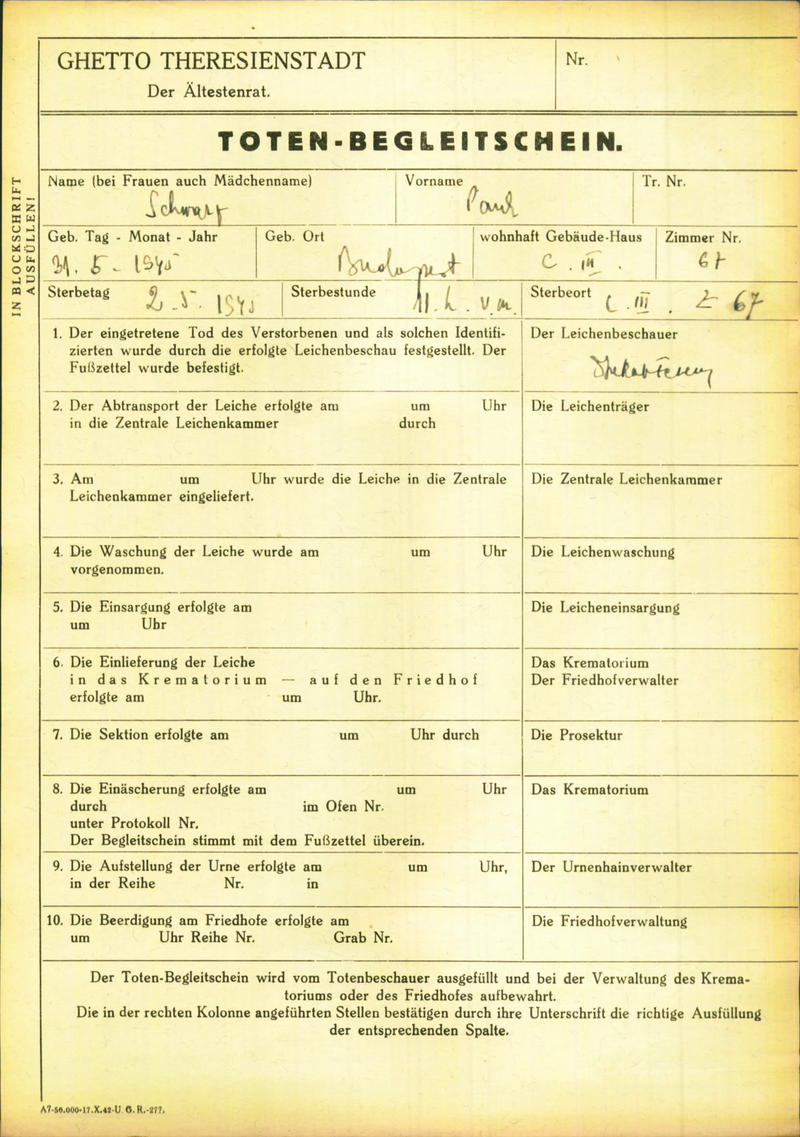 GHETTO THERESIENSTADT
Nr.
Der Ältestenrat.
TOTEN-BEGLEITSCHEIN.
IN BLOCKSCHRIFT
AUSFÜLLEN!
Name (bei Frauen auch Mädchenname) Vorname Tr. Nr.
Schwarz Paul
Geb. Tag - Monat - Jahr Geb. Ort wohnhaft Gebäude-Haus Zimmer Nr.
5. 1945 Budapest C. III. 67
Sterbetag 2.5. 1945 Sterbestunde 11 h. v.m. Sterbeort C. III. Z 67
1. Der eingetretene Tod des Verstorbenen und als solchen Identifi-
zierten wurde durch die erfolgte Leichenbeschau festgestellt. Der
Fußzettel wurde befestigt.
Der Leichenbeschauer
2. Der Abtransport der Leiche erfolgte am um Uhr
in die Zentrale Leichenkammer durch
Die Leichenträger
3. Am um Uhr wurde die Leiche in die Zentrale
Leichenkammer eingeliefert.
Die Zentrale Leichenkammer
4. Die Waschung der Leiche wurde am um Uhr
vorgenommen.
Die Leichenwaschung
5. Die Einsargung erfolgte am
um Uhr
Die Leicheneinsargung
6. Die Einlieferung der Leiche
in das Krematorium — auf den Friedhof
erfolgte am um Uhr.
Das Krematorium
Der Friedhofverwalter
7. Die Sektion erfolgte am um Uhr durch
Die Prosektur
8. Die Einäscherung erfolgte am um Uhr
durch im Ofen Nr.
unter Protokoll Nr.
Der Begleitschein stimmt mit dem Fußzettel überein.
Das Krematorium
9. Die Aufstellung der Urne erfolgte am um Uhr,
in der Reihe Nr. in
Der Urnenhainverwalter
10. Die Beerdigung am Friedhofe erfolgte am
um Uhr Reihe Nr. Grab Nr.
Die Friedhofverwaltung
Der Toten-Begleitschein wird vom Totenbeschauer ausgefüllt und bei der Verwaltung des Krema-
toriums oder des Friedhofes aufbewahrt.
Die in der rechten Kolonne angeführten Stellen bestätigen durch ihre Unterschrift die richtige Ausfüllung
der entsprechenden Spalte.
A7-50.000-17.X.42-U. G. R.-277.